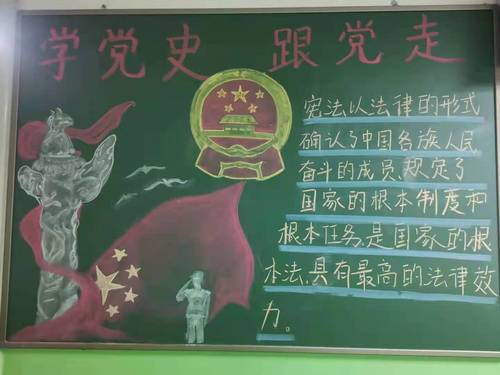 学党史 跟党走
宪法以法律的形式
确认了中国各族人民
奋斗的成员,规定了
国家的根本制度和
根本任务,是国家的根
本法,具有最高的法律效
力。